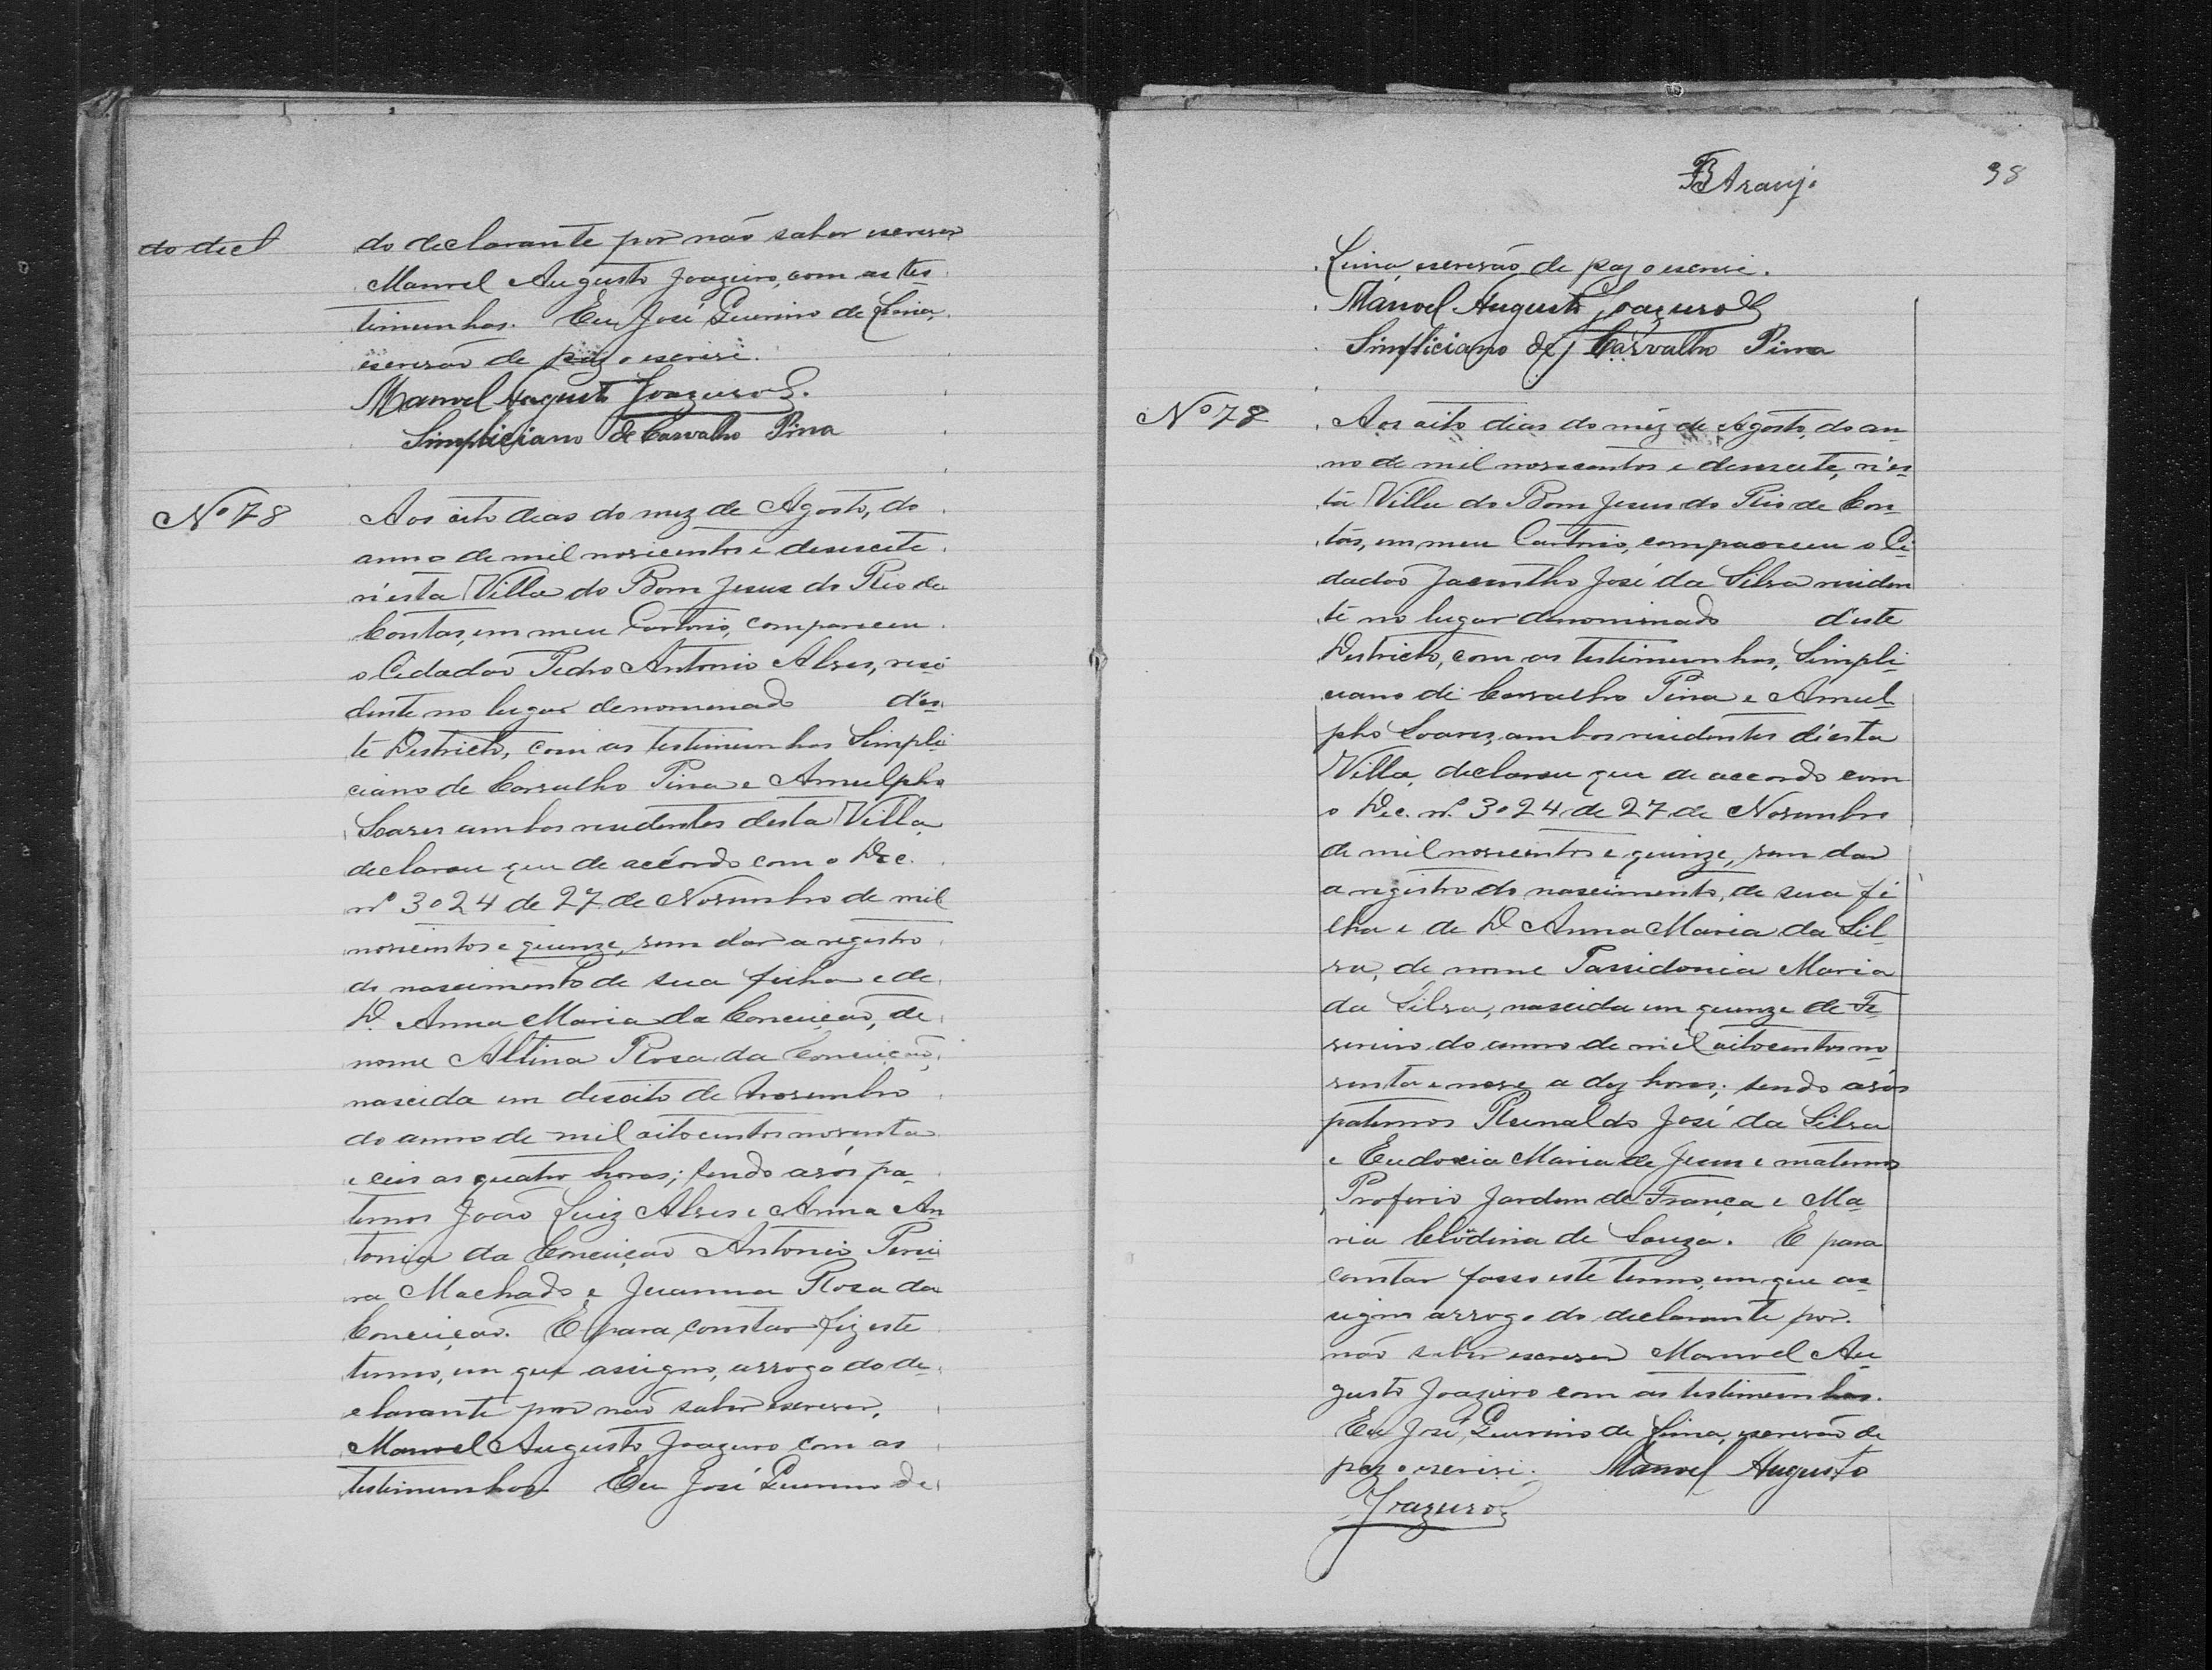 do decl
do declarante por não saber escrever
Manoel Augusto Joazeiro, com as tes
timunhas. Eu José Guirino de Lima,
escrivão de paz o escrivi.
Manoel August Joazeiro
Simpliciano de Carvalho Pina
Nº 78
Aos oito dias do mez de Agosto, do
anno de mil novicentos e desesete
n'esta Villa do Bom Jesus do Rio de
Contas, em meu Cartorio, compareceu
o Cidadão Pedro Antonio Alves, resi
dente no lugar denominado d'es
te Destricto, com as testimunhas Simpli
ciano de Carvalho Pina e Arnulpho
Soares ambos residentes desta Villa,
declarou que de accôrdo com o Dec.
nº 3024 de 27 de Novembro de mil
novicentos e quinze, vem dar a registro
do nascimento de sua filha e de
D. Anna Maria da Conceição, de
nome Altina Rosa da Conceição,
nascida em desoito de Novembro
do anno de mil oitocentos noventa
e ceis as quatro horas; sendo avós pa
ternos João Luiz Alves e Anna An
tonia da Conceição Antonio Perei
ra Machado e Juanna Rosa da
Conceição. E para constar fiz este
termo, em que assigno, arrogo do de
clarante por não saber escrever,
Manoel Augusto Joazeiro com as
testimunhas. Eu José Guirino de
B Arauj.
38
Lima, escrivão de paz o escrivi.
Manoel August Joazeiro
Simpliciano de Carvalho Pina
Nº 78
Aos oito dias do mêz de Agosto, do an-
no de mil novecentos e desesete, n'es
ta Villa do Bom Jesus do Rio de Con-
tas, em meu Cartorio, compareceu o Ci-
dadão Jacintho José da Silva residen
te no lugar denominado d'este
Destricto, com as testimunhas, Simpli-
ciano de Carvalho Pina e Arnul-
pho Soares, ambos residentes d'esta
Villa, declarou que de accordo com
o Dec. nº 3024 de 27 de Novembro
de mil novicentos e quinze, vem dar
a registro do nascimento, de sua fi
lha e de D. Anna Maria da Sil-
va, de nome Maria
da Silva, nascida em quinze de Fe-
vereiro do anno de mil oitocentos no-
venta e nove a dez horas; sendo avós
paternos Reinaldo José da Silva
e Eudoxia Maria de Jesus e maternos
Proferio Jardim de França e Ma-
ria Clodina de Souza. E para
constar fasso este termo, em que as-
signo arrogo do declarante por
não saber escrever Manoel Au-
gusto Joazeiro com as testimunhas.
Eu José Guirino de Lima, escrivão de
paz o escrivi. Manoel Augusto
Joazeiro